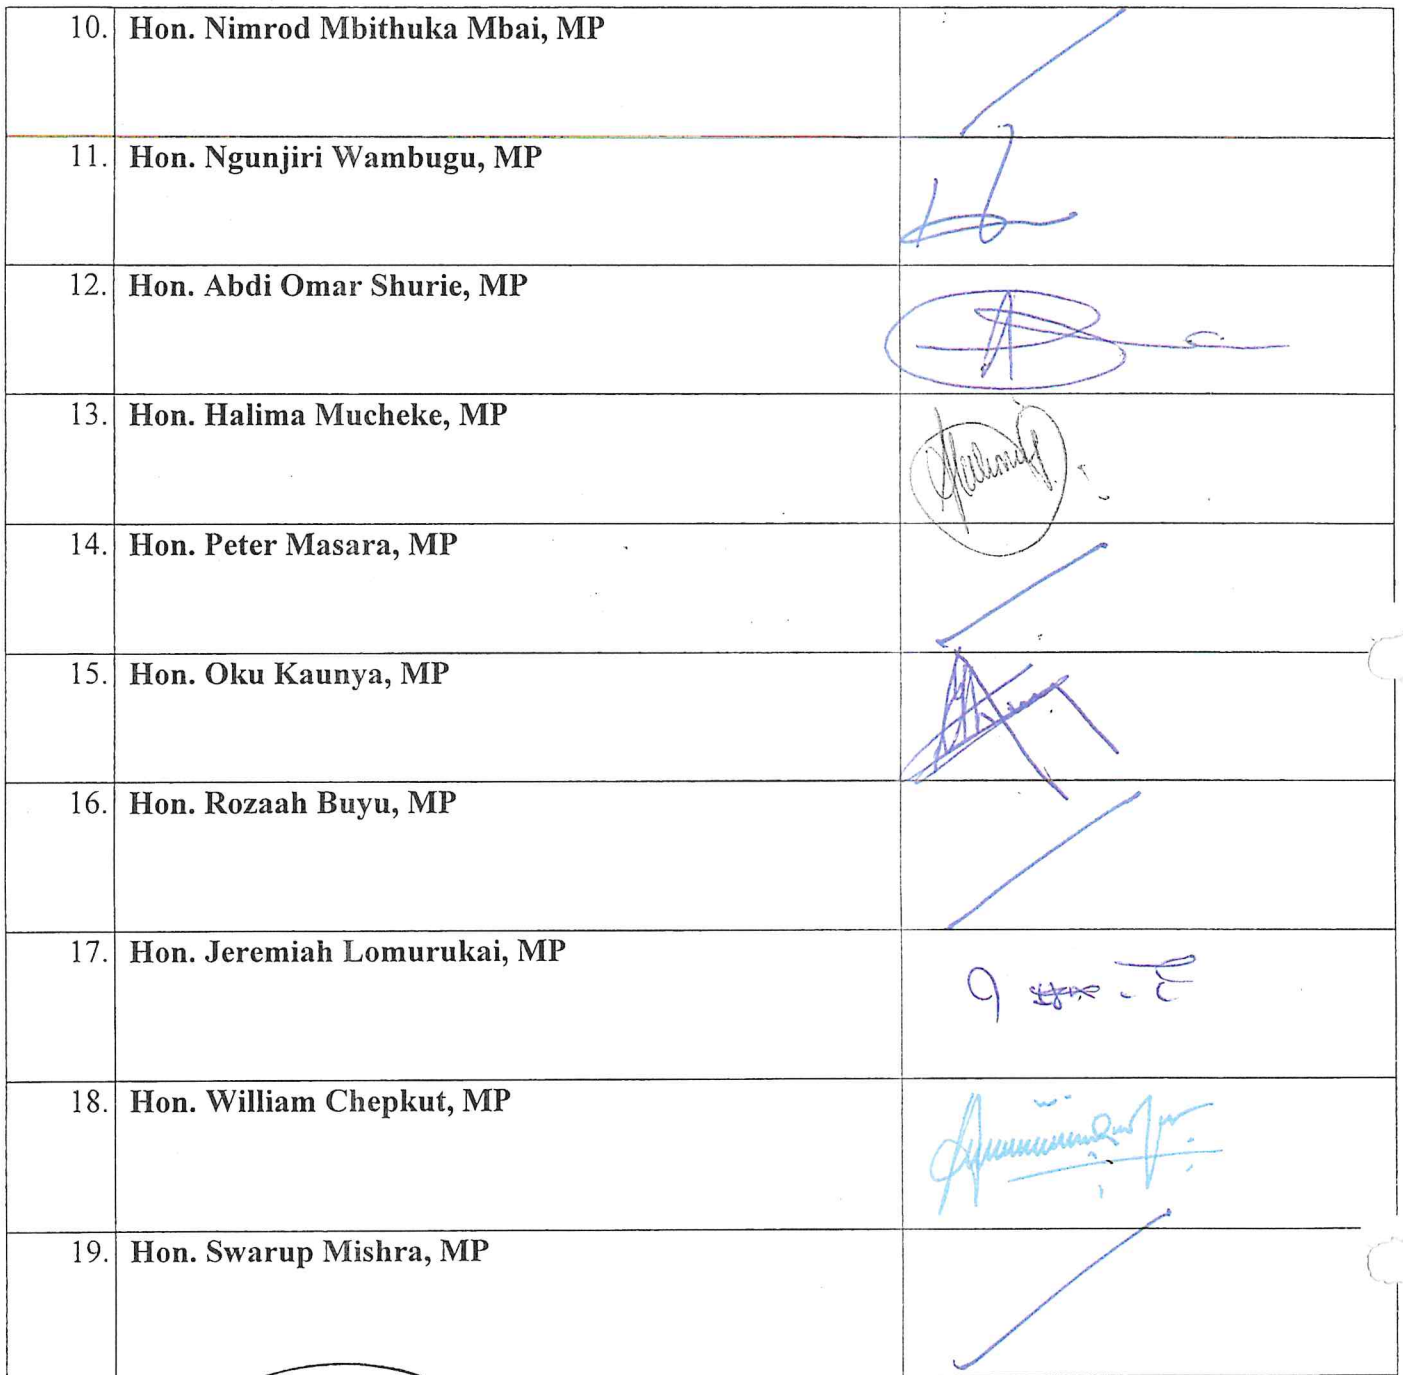 10. Hon. Nimrod Mbithuka Mbai, MP
11. Hon. Ngunjiri Wambugu, MP
12. Hon. Abdi Omar Shurie, MP
13. Hon. Halima Mucheke, MP
14. Hon. Peter Masara, MP
15. Hon. Oku Kaunya, MP
16. Hon. Rozaah Buyu, MP
17. Hon. Jeremiah Lomurukai, MP
18. Hon. William Chepkut, MP
19. Hon. Swarup Mishra, MP